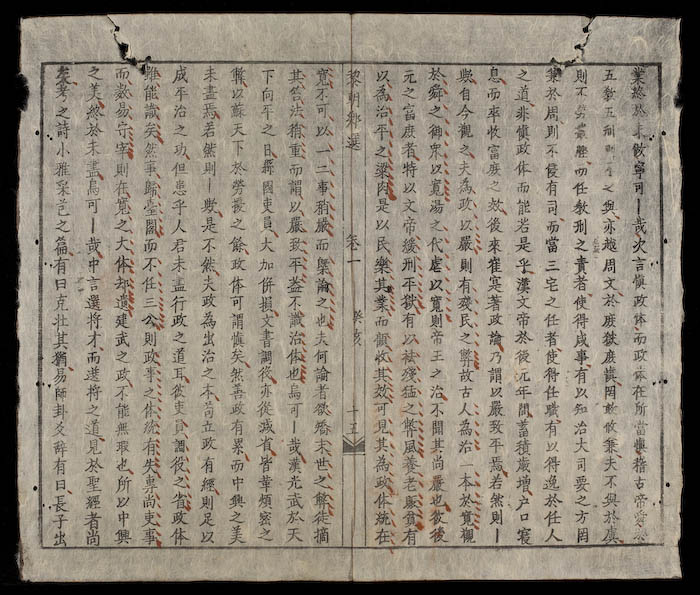 業終於未敢寧可｜哉次言慎政体而政体在所當慎稽古帝舜於
五教五刑則之與亦越周文於庶獄庶慎罔敢攸兼夫不與於虞
則不勞而任教刑之責者使得成事有以知治大司要之方罔
兼於周則不侵有司而當三宅之任者使得任職有以得逸於任人
之道非慎政体而能若是乎漢文帝於後元年間蓄積歲增户口寖
息而卒收富庶之效後來崔寔著政論乃謂以嚴致平焉若然則｜
與自今觀之夫為政以嚴則有殘民之弊故古人為治一本於寬觀
於舜之御眾以寬湯之代虐以寬則帝王之治不聞其尚嚴也彼後
元之富庶者特以文帝緩刑平獄有以祛殘猛之弊風養老賑貧有
以為治平之粱肉是以民樂其業而收其効可見其為政体統在
黎朝鄉選 卷一 癸亥 十五
寬不可以一二事稍嚴而槩論之也夫何論者欲矯末世之解徒摘
其笞法稍重而謂以嚴致平盖不識治体也烏可｜哉漢光武於天
下向平之日國吏員大加併損文書調役亦從减省皆革煩密之
弊以蘇天下於勞擾之餘政体可謂慎矣然善政有累而中興之美
未盡焉若然則｜與是不然夫政為出治之本苟立政有經則足以
成平治之功但患乎人君未盡行政之道耳彼吏員調役之省政体
雖能識矣然事歸臺閣而不任三公則政事之体統有失專尚吏事
而数易守宰則在寬之大体却遺建武之政不能無瑕也所以中興
之美終於未盡烏可｜哉中言選將才而選將之道見於聖經者尚
矣考之詩小雅采芑之篇有曰克壯其猶易師卦爻辭有曰長子出